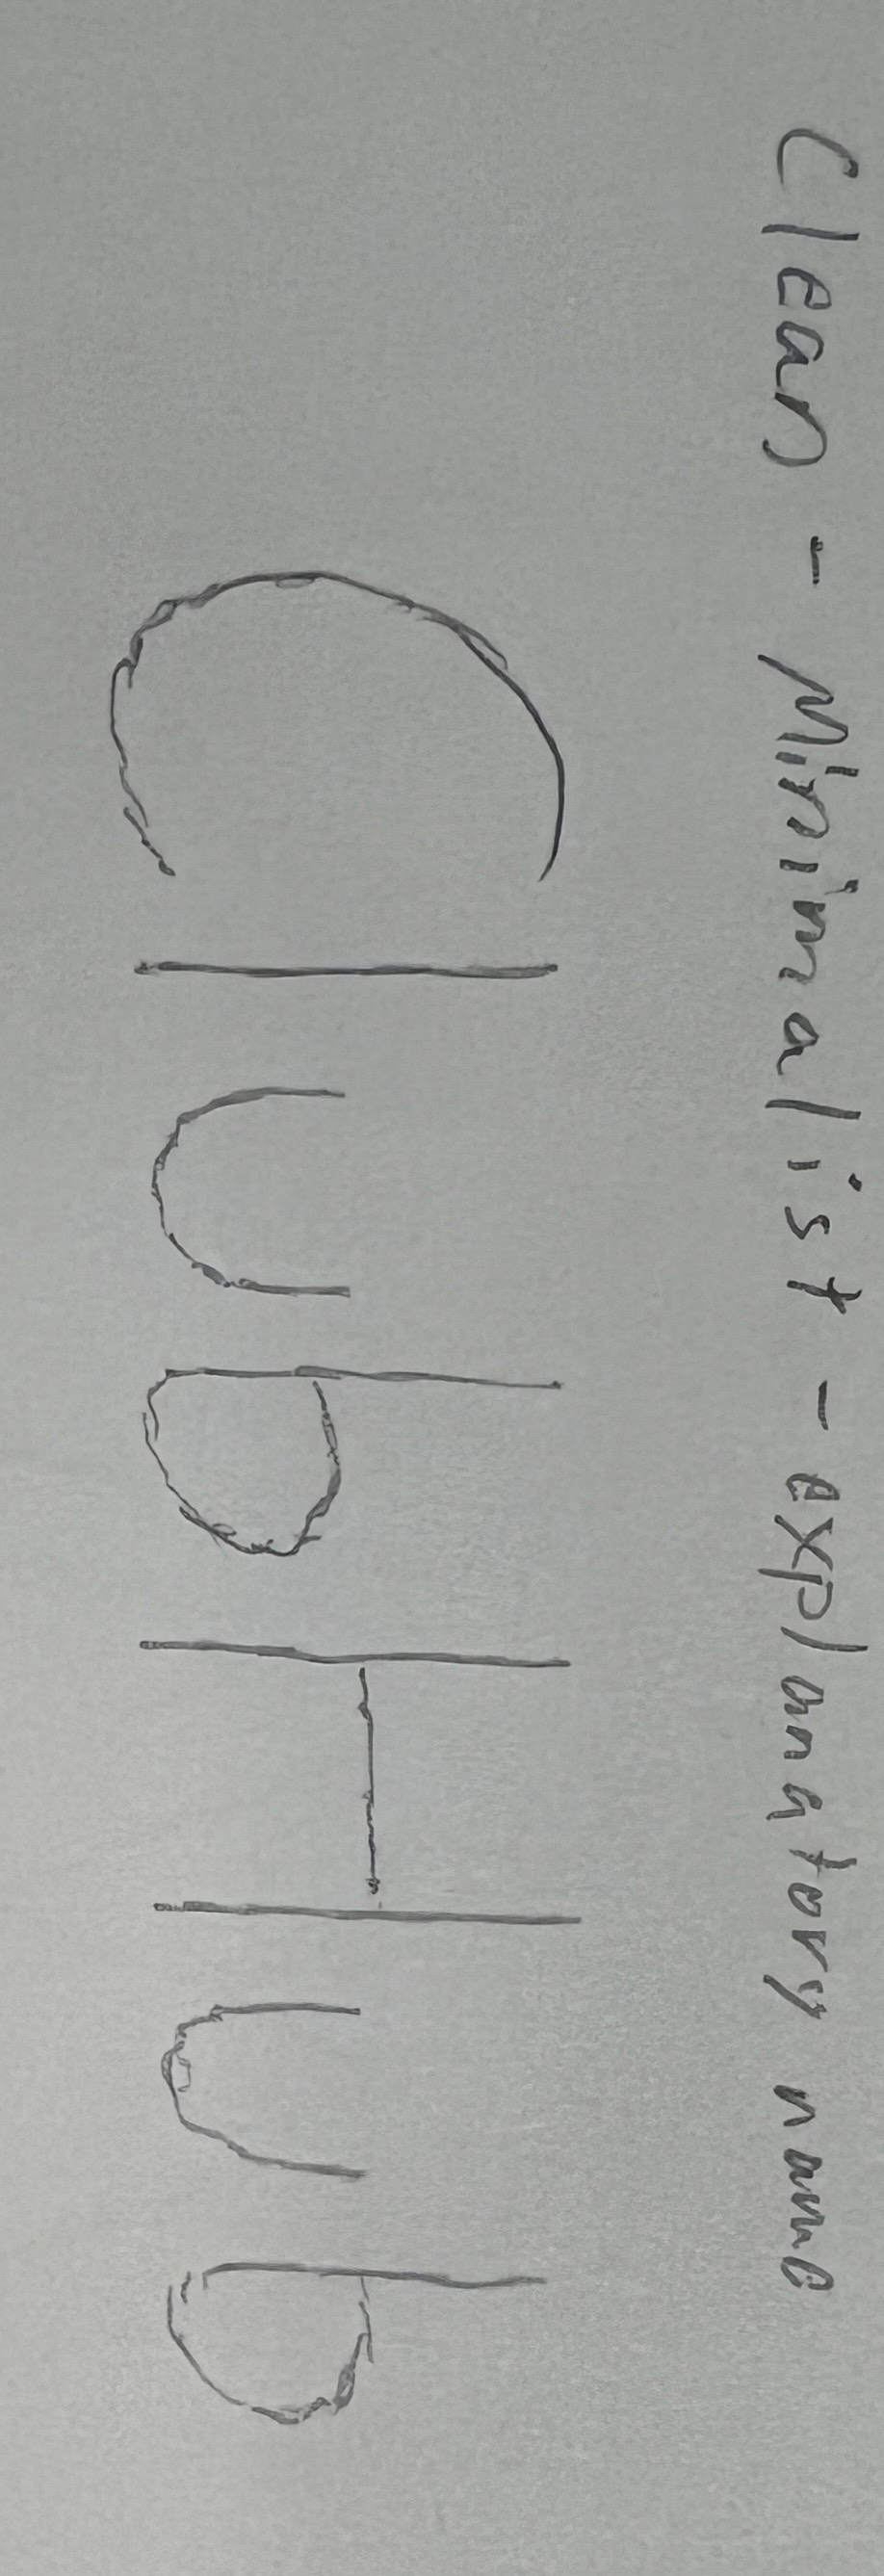 Clean - Minimalist - explanatory name
ClubHub